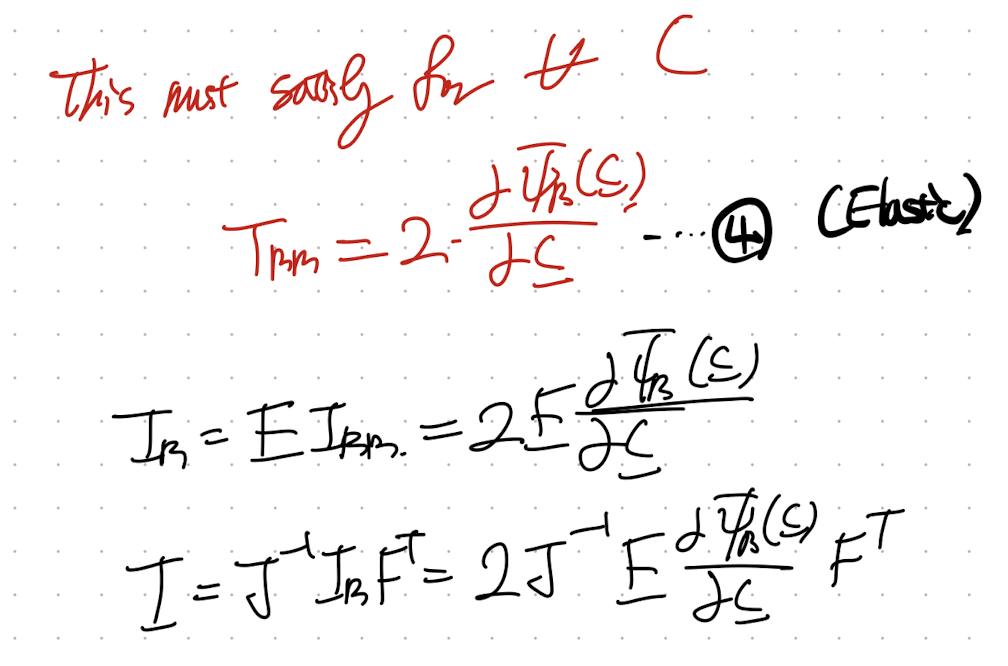 This must satisfy for ∀ C
T_RR = 2 · ∂ψ̄_R(C) / ∂C ----- ④ (Elastic)
T_R = F T_RR. = 2 F ∂ψ̄_R(C) / ∂C
T = J⁻¹ T_R Fᵀ = 2 J⁻¹ F ∂ψ̄_R(C) / ∂C Fᵀ